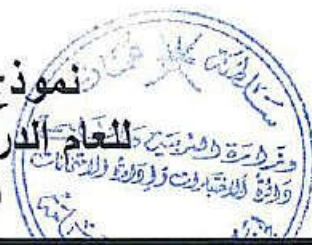 نموذج
للعام الدر
سلطنة عمان
وزارة التربية
دائرة الاختبارات وإدارة الامتحانات